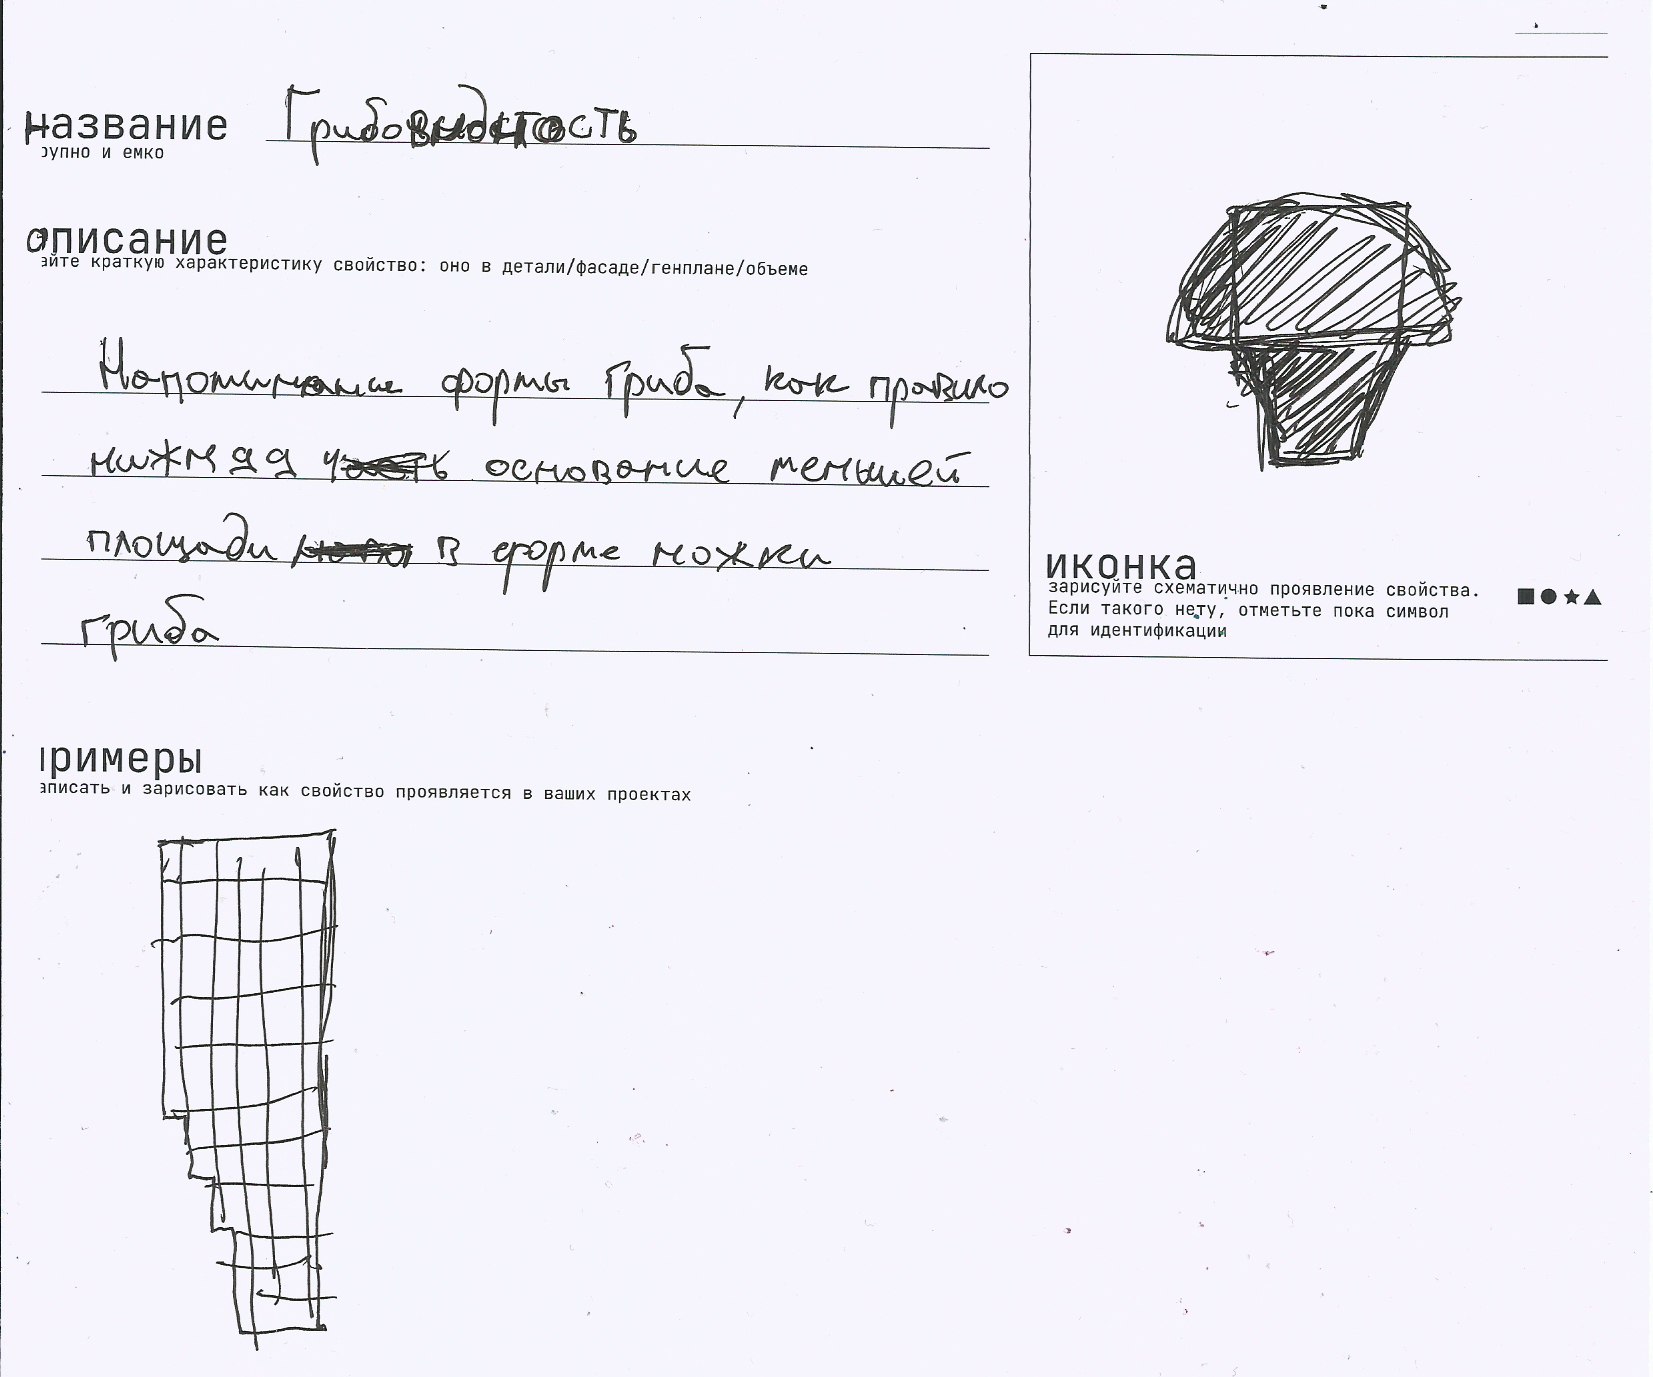 название Грибовидность
рупно и емко
описание
айте краткую характеристику свойство: оно в детали/фасаде/генплане/объеме
Напоминание формы гриба, как правило
нижняя часть основание меньшей
площади в форме ножки
гриба
иконка
зарисуйте схематично проявление свойства.
Если такого нету, отметьте пока символ
для идентификации
примеры
аписать и зарисовать как свойство проявляется в ваших проектах